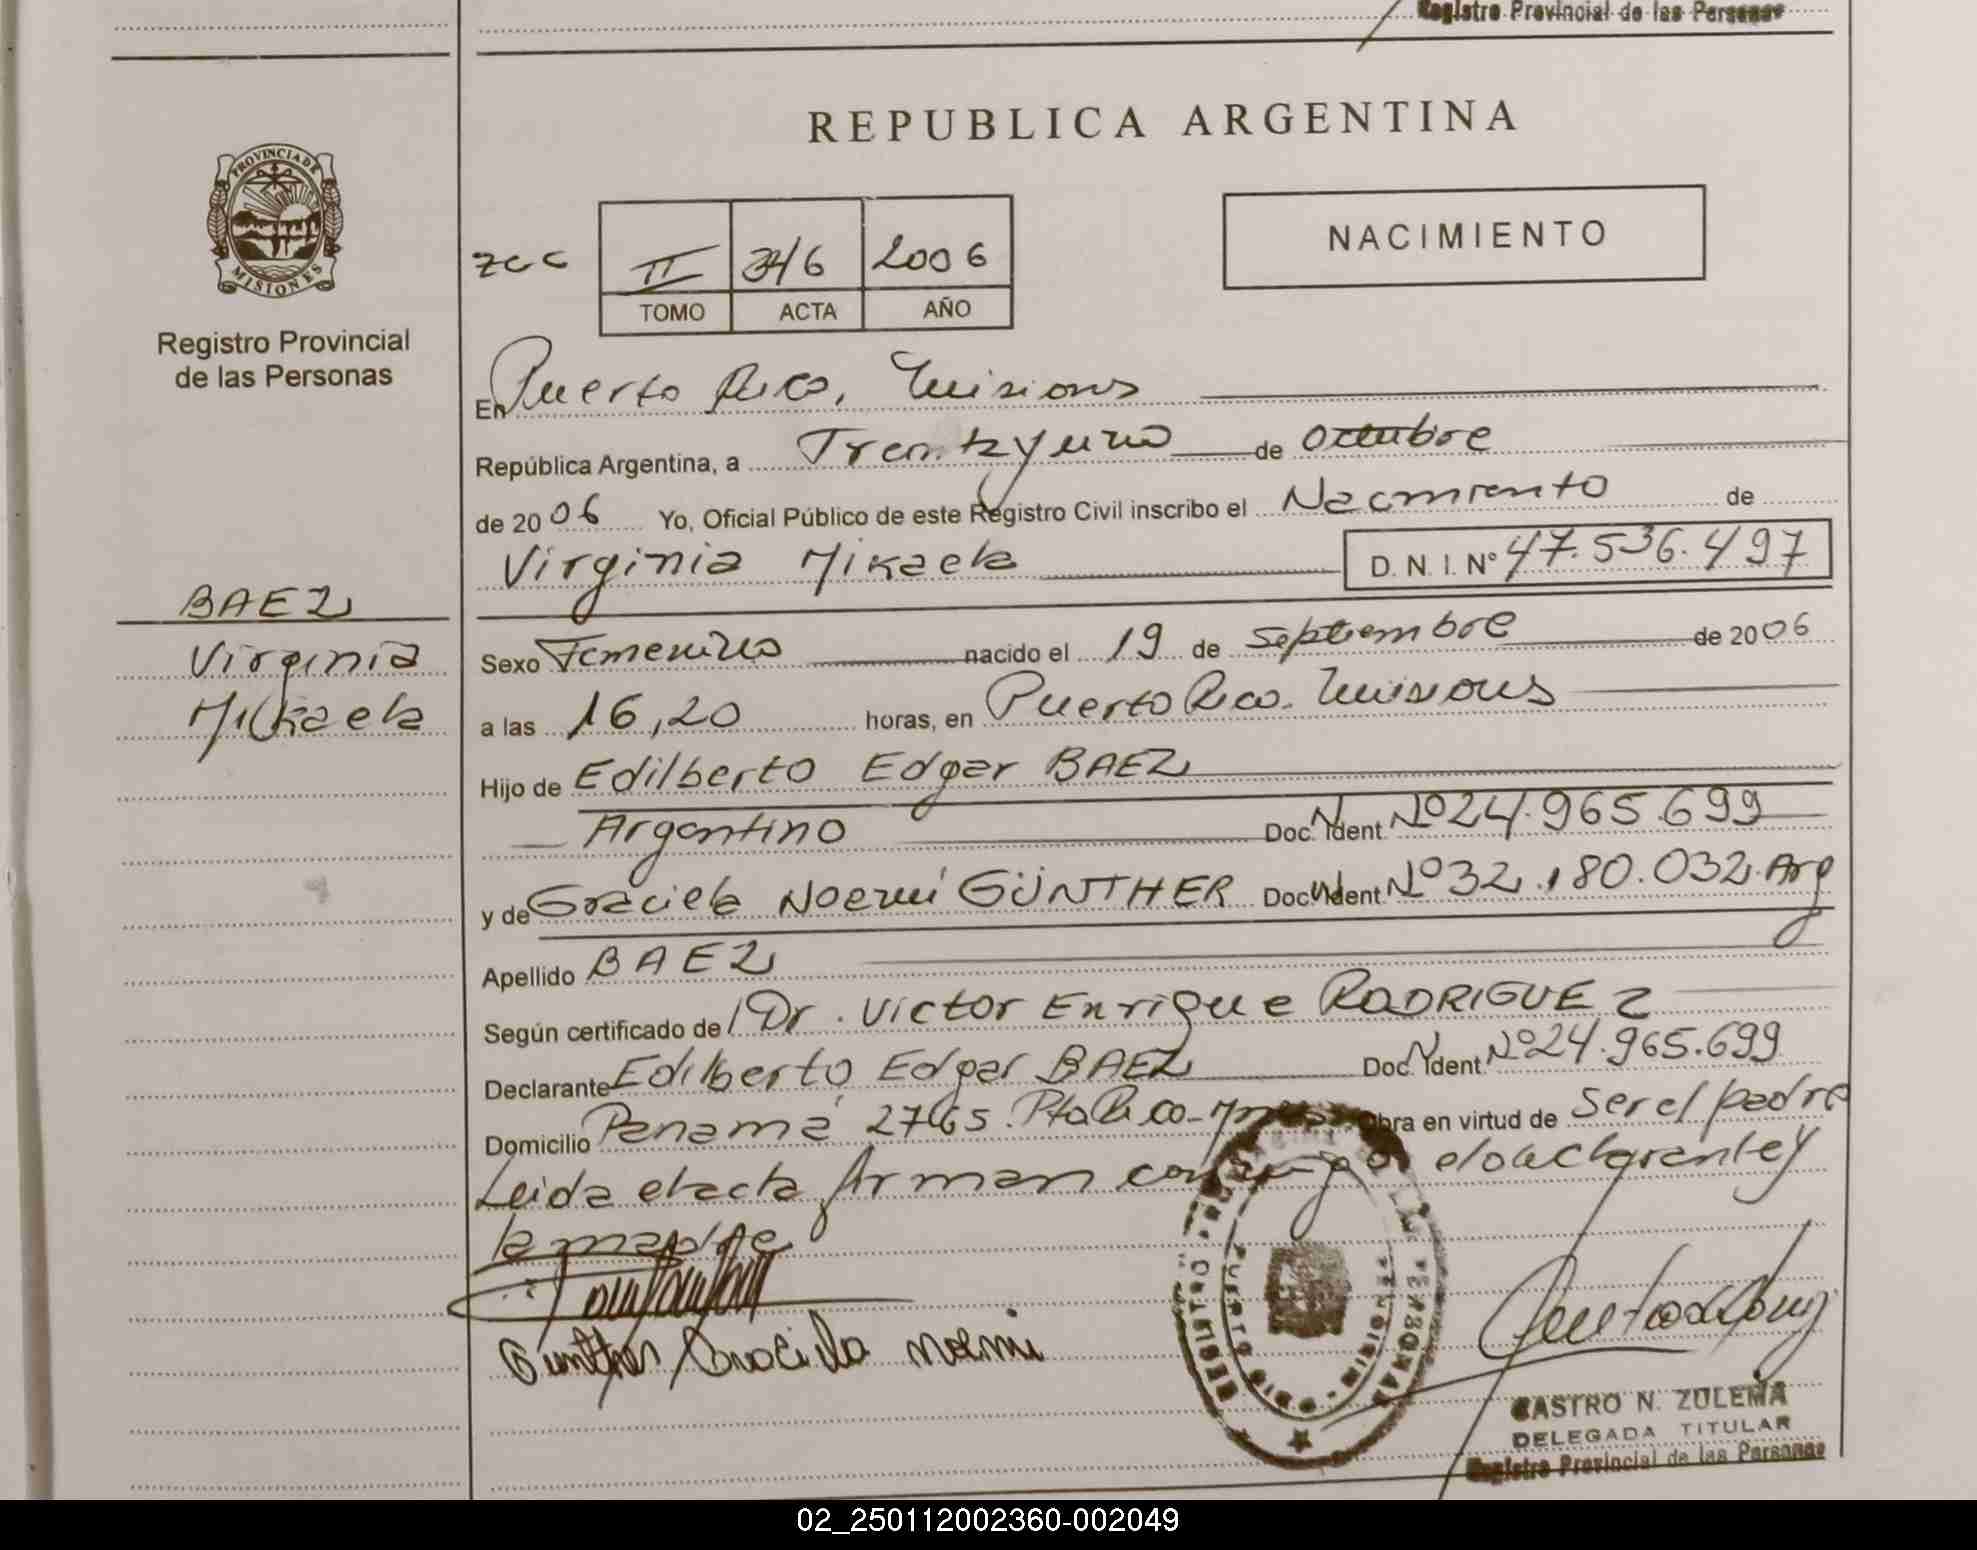 Registro Provincial de las Personas
REPUBLICA ARGENTINA
PROVINCIA DE
MISIONES
Registro Provincial
de las Personas
zcc
II 346 2006
TOMO ACTA AÑO
NACIMIENTO
En Puerto Rico, Misiones
República Argentina, a Treintayuno de Octubre
de 2006 Yo, Oficial Público de este Registro Civil inscribo el Nacimiento de
Virginia Mikaela D. N. I. Nº 47.536.497
BAEZ
Virginia
Mikaela
Sexo Femenino nacido el 19 de Septiembre de 2006
a las 16,20 horas, en Puerto Rico. Misiones
Hijo de Edilberto Edgar BAEZ
Argentino Doc. N. Ident. Nº 24.965.699
y de Graciela Noemí GÜNTHER Doc. N. Ident. Nº 32.180.032. Arg
Apellido BAEZ
Según certificado de Dr. Victor Enrique RODRIGUEZ
Declarante Edilberto Edgar BAEZ Doc. N. Ident. Nº 24.965.699
Domicilio Panamá 2765. Pto Rico - Mnes Obra en virtud de ser el padre
Leida el acta firman conmigo el declarante y
la madre
Günther Graciela Noemi
REGISTRO DE LAS PERSONAS
PUERTO RICO - MISIONES
CASTRO N. ZULEMA
DELEGADA TITULAR
Registro Provincial de las Personas
02_250112002360-002049